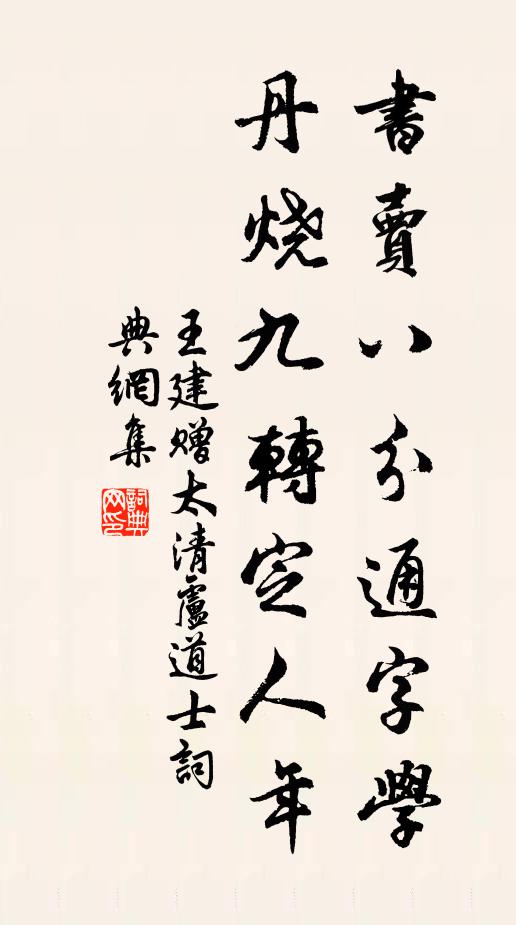 書賣八分通字學
丹燒九轉定人年
王建贈太清盧道士詞
典網集
詞典網印